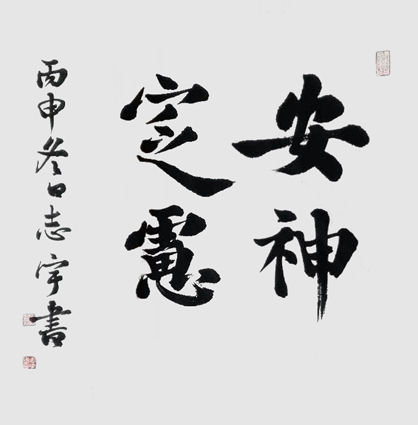 安神
定慮
丙申冬日志宇書